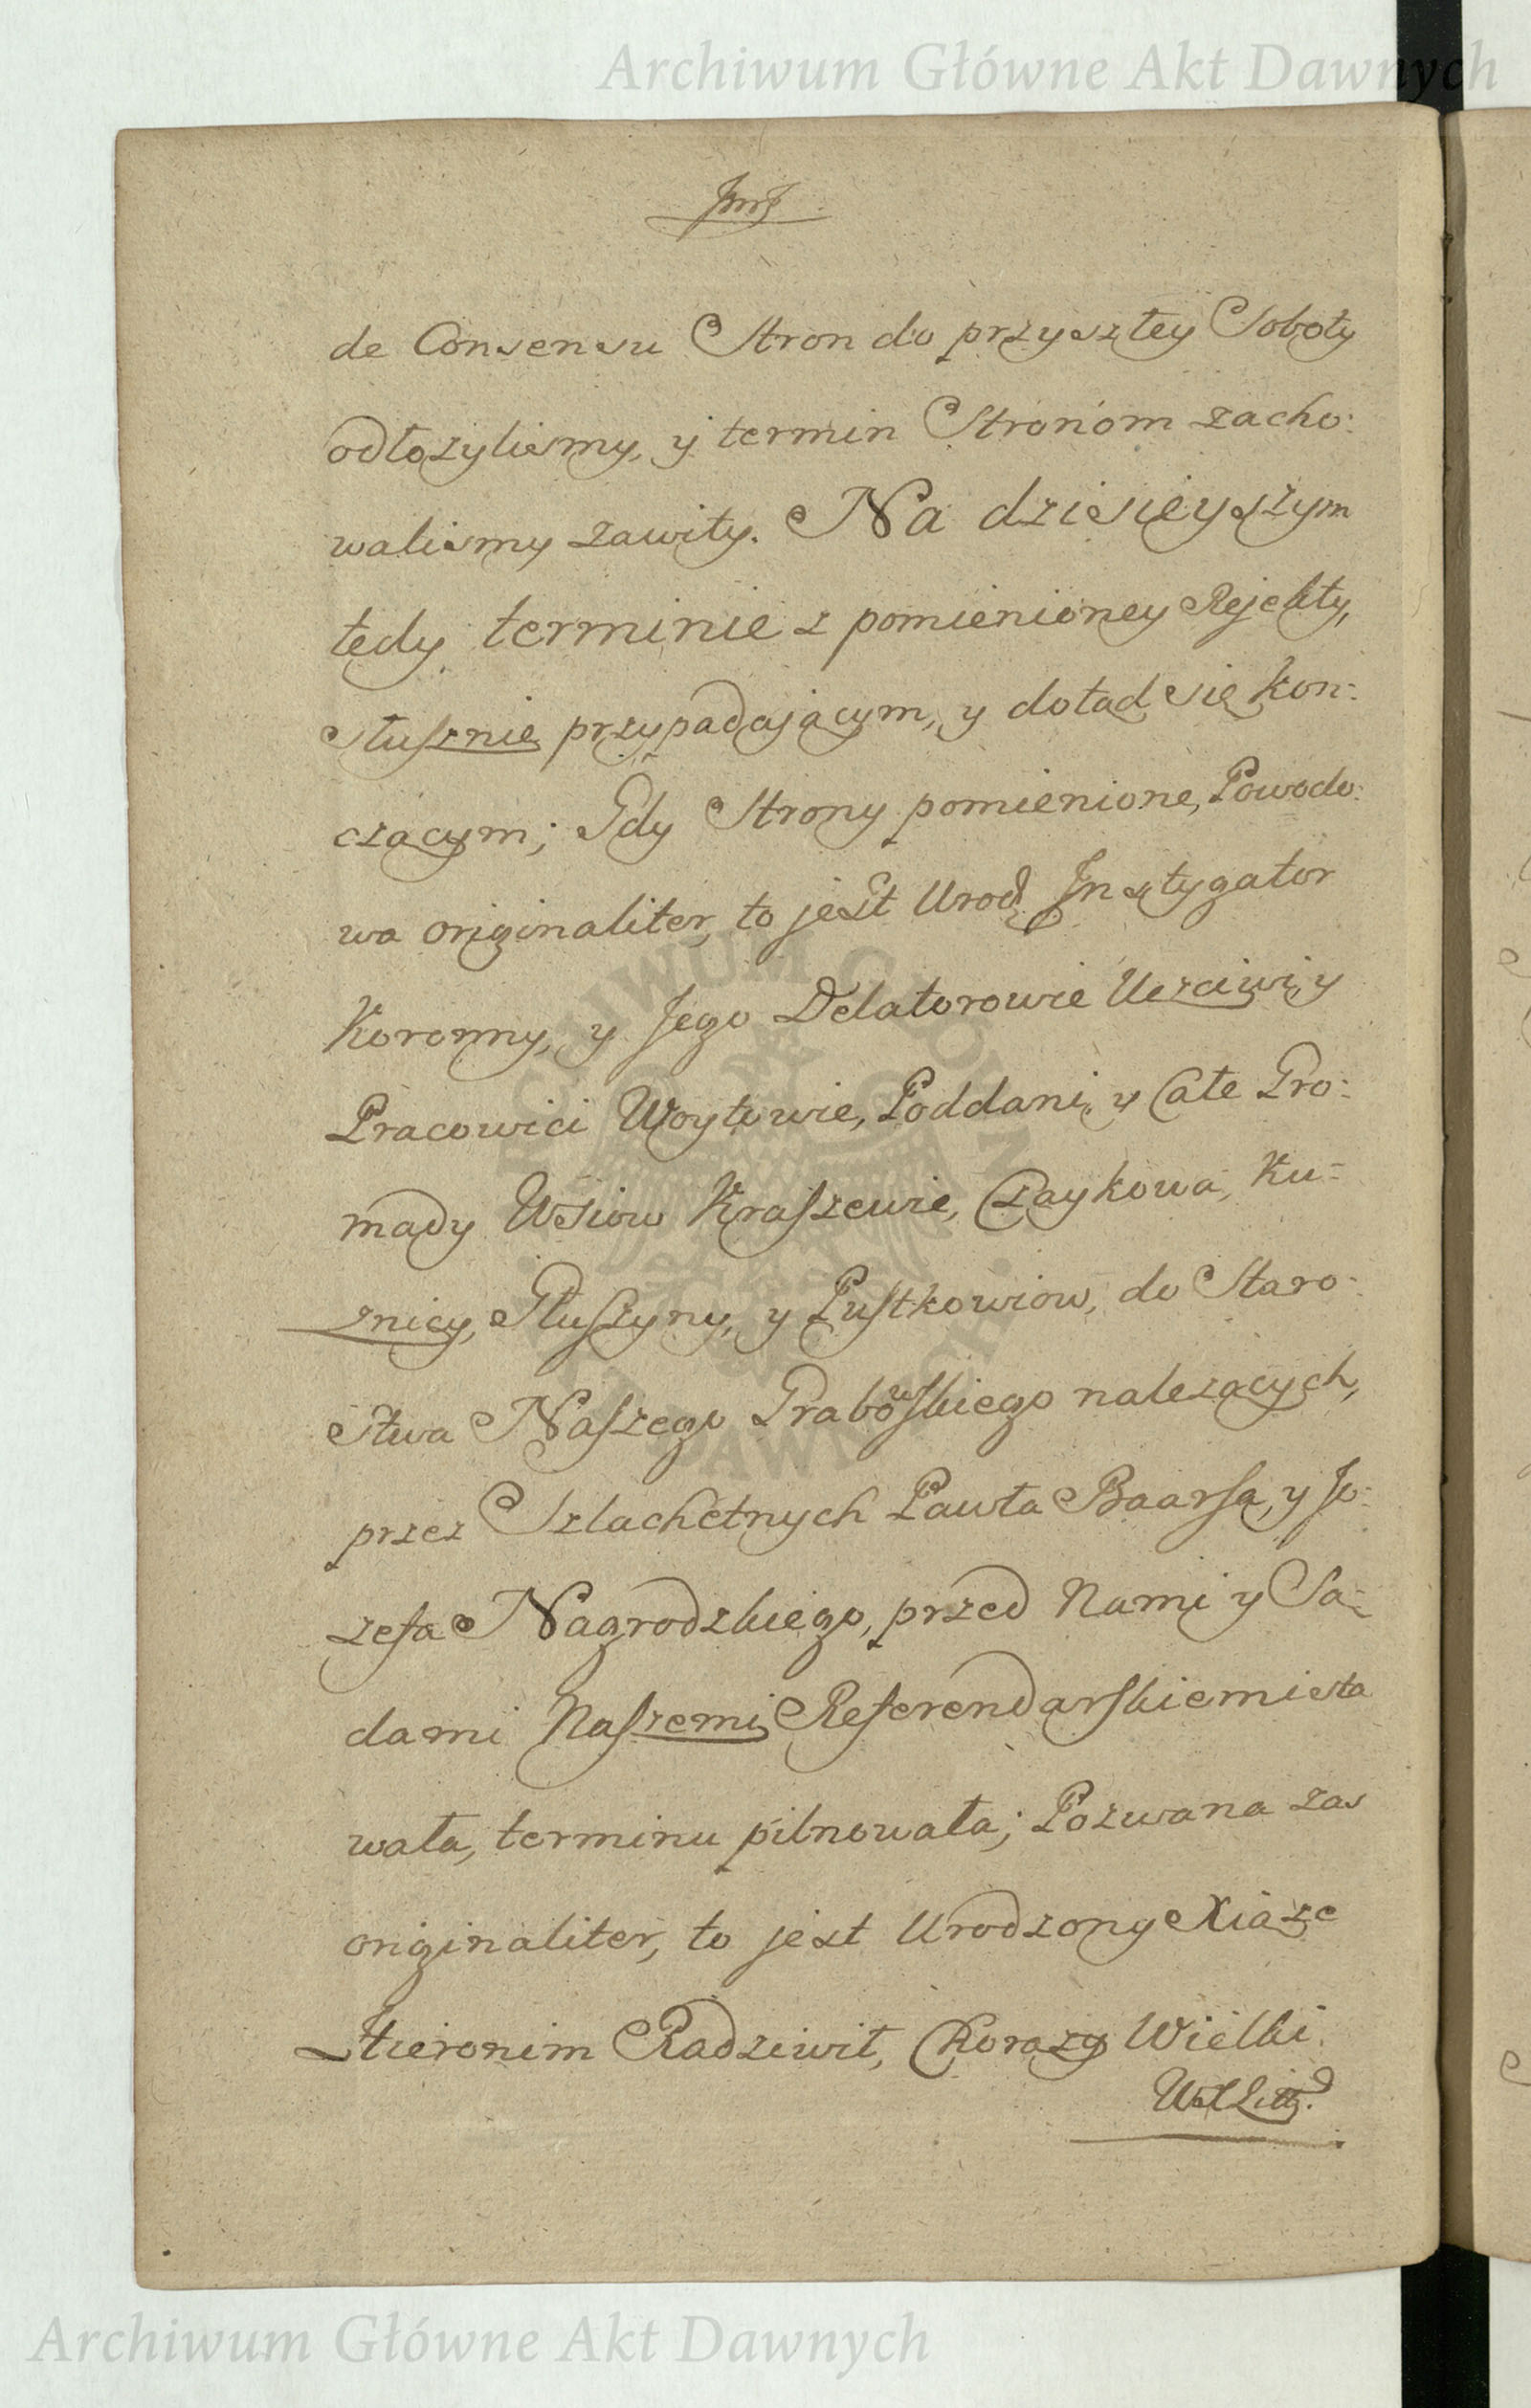 Archiwum Główne Akt Dawnych
de Consensu Stron do przyszłey Soboty
odłozylismy, y termin Stronom zacho:
walismy zawity. Na dzisieyszym
tedy terminie z pomienioney Rejekty,
słusznie przypadaiącym, y dotąd się kon:
czącym; Gdy Strony pomienione, Powodo:
wa originaliter, to jest Urodz Instygator
Koronny, y Jego Delatorowie Uczciwi, y
Pracowici Woytowie, Poddani, y Całe Gro:
mady Wsiow Kraszewic, Czaykowa, Ku:
znicy, Głuszyny, y Pustkowiow, do Staro:
stwa Naszego Grabowskiego nalezących,
przez Szlachetnych Pawła Baarsa, y Jo:
zefa Nagrodzkiego, przed Nami y Są:
dami Naszemi Referendarskiemi sta
wała, terminu pilnowała; Pozwana zas
originaliter, to jest Urodzony Xiąze
Hieronim Radziwił, Chorązy Wielki
WXLitt.
Archiwum Główne Akt Dawnych